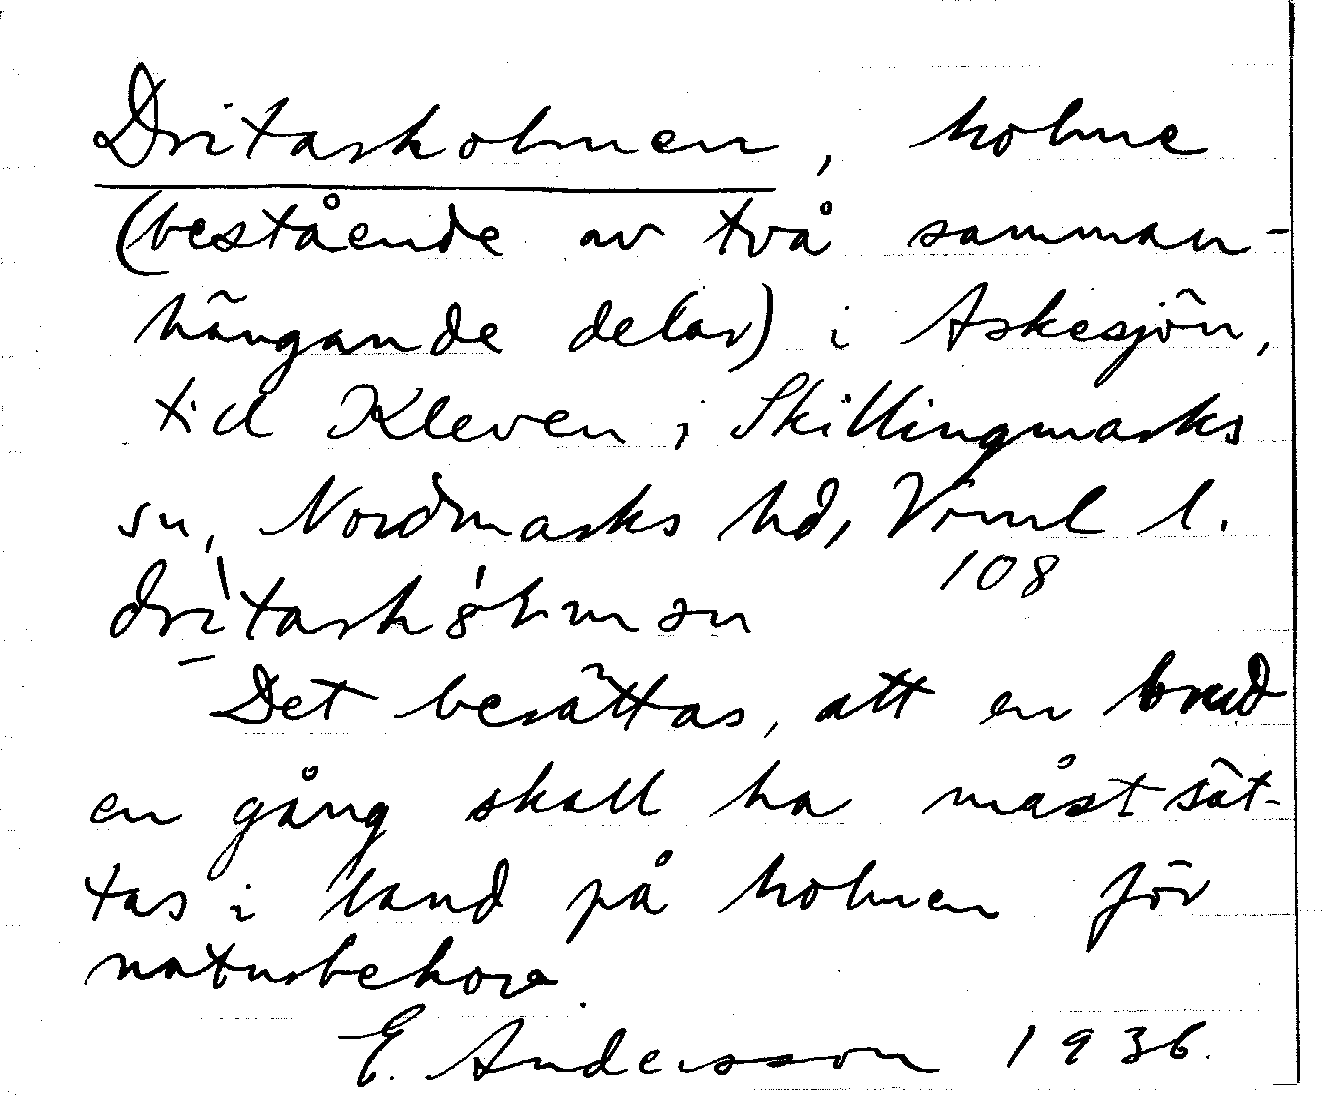 Dritarholmen, holme
(bestående av två samman-
hängande delar) i Askesjön,
tid Kleven i Skillingmarks
sn, Nordmarks hd, Värml l.
108
dritarhólmən
Det berättas, att en brud
en gång skall ha måst sät-
tas i land på holmen för
naturbehov.
E. Andersson 1936.